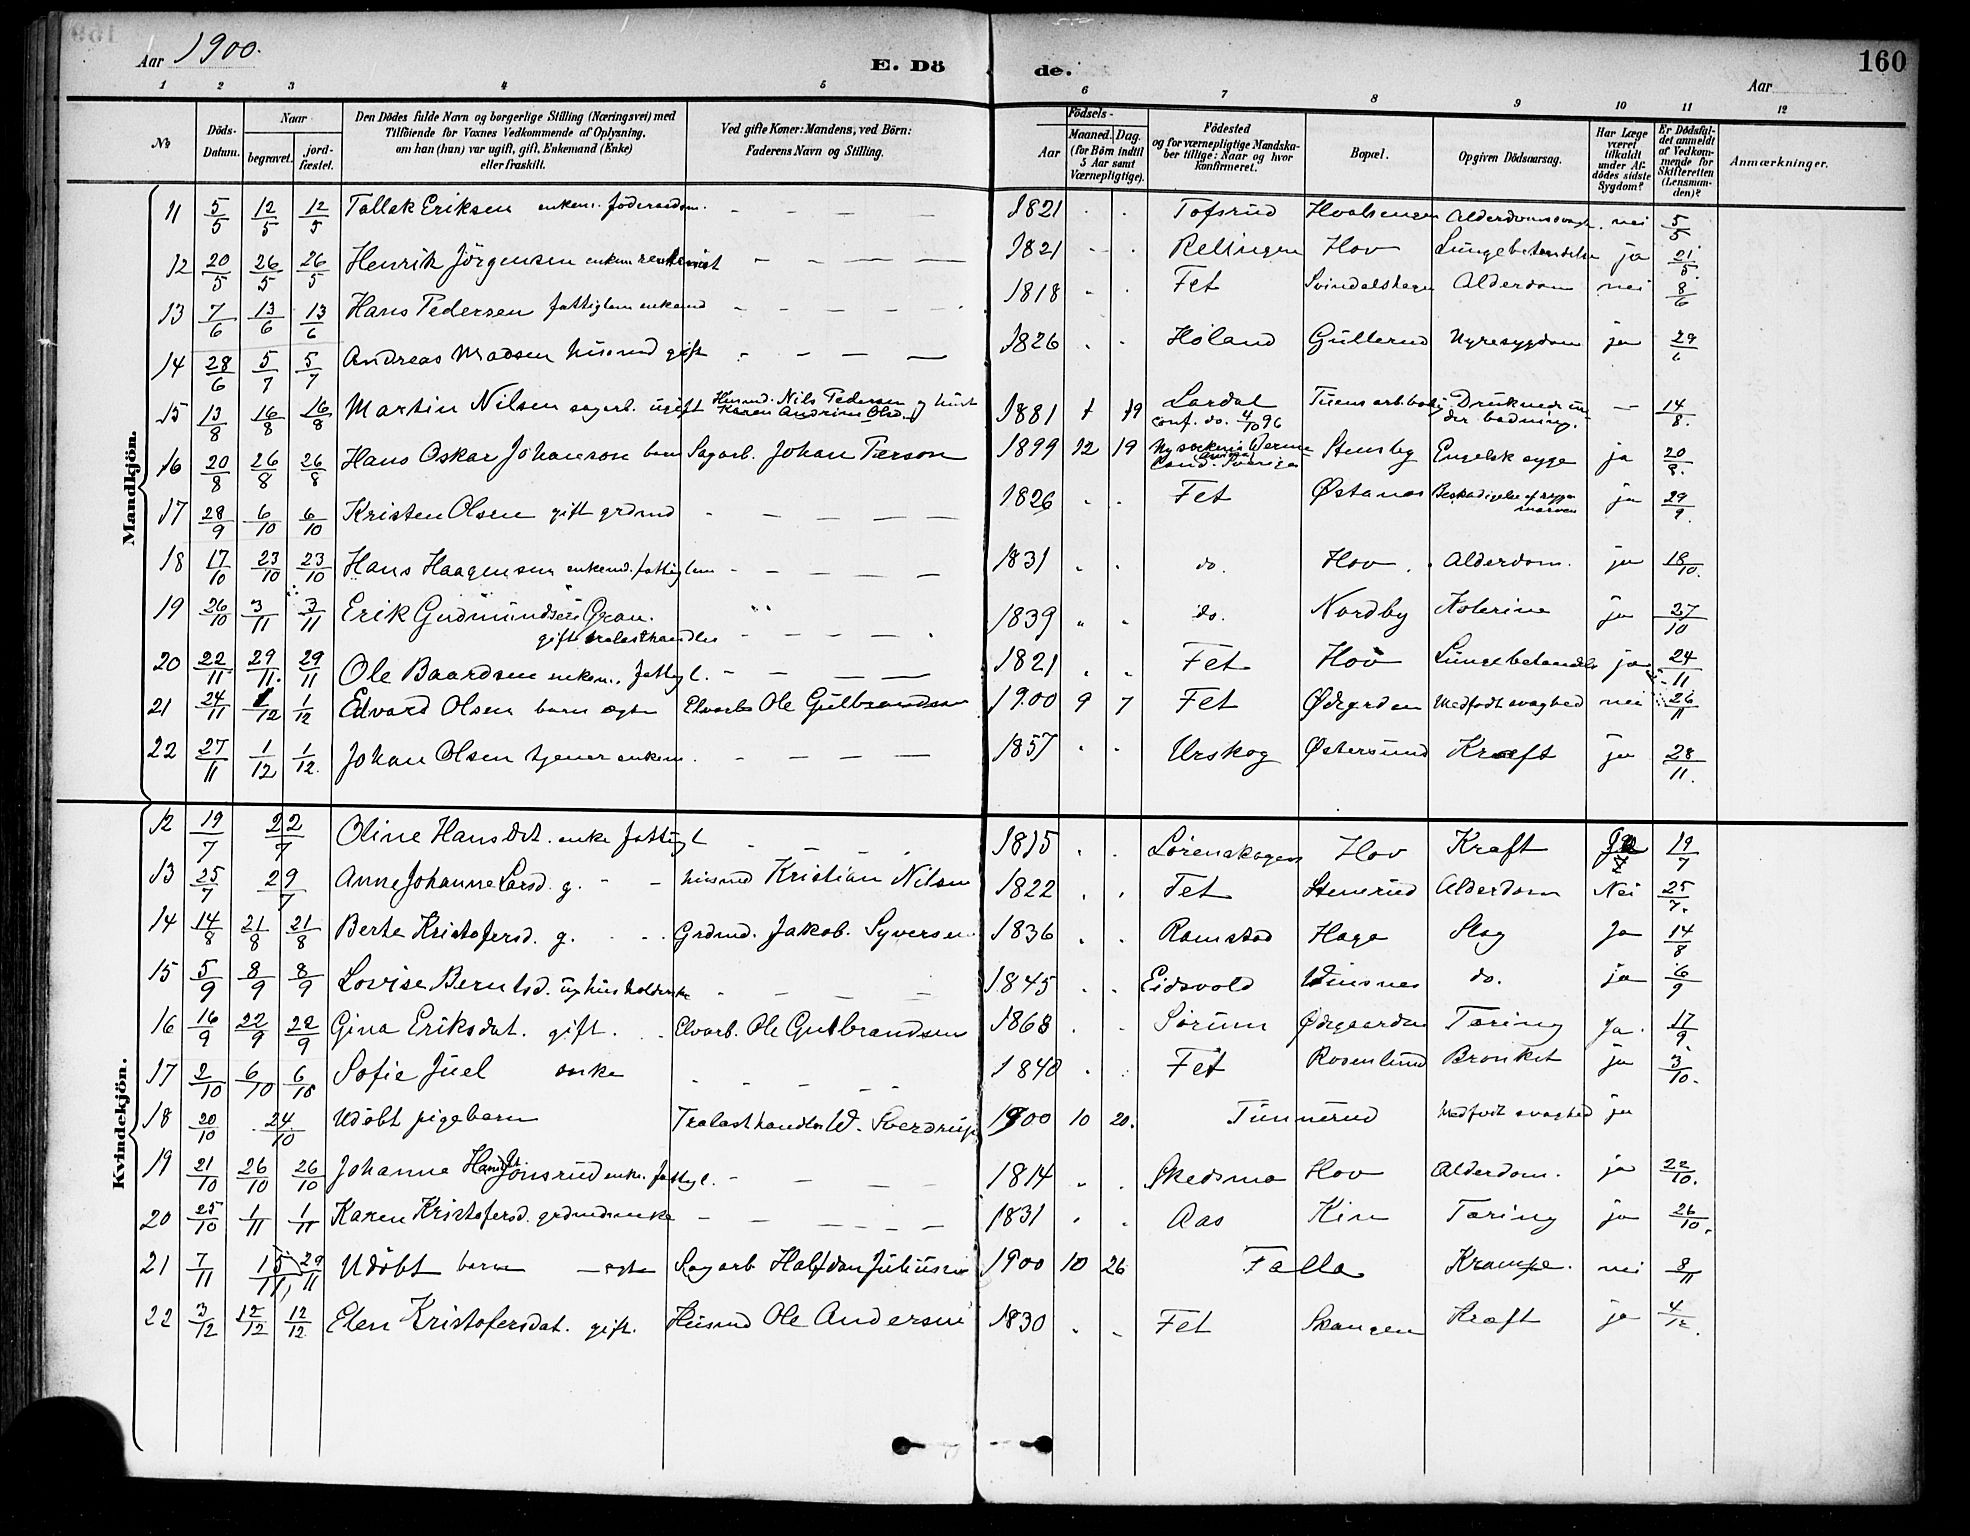 160
Aar 1900.
E. Dö de.
Aar
1 2 3 4 5 6 7 8 9 10 11 12
№
Döds-Datum.
Naar
begravet.
jord-fæstet.
Den Dödes fulde Navn og borgerlige Stilling (Næringsvei) med
Tilföiende for Voxnes Vedkommende af Oplysning,
om han (hun) var ugift, gift, Enkemand (Enke)
eller fraskilt.
Ved gifte Koner: Mandens, ved Börn:
Faderens Navn og Stilling.
Födsels-
Aar
Maaned. Dag.
(for Börn indtil
5 Aar samt
Værnepligtige).
Födested
og for værnepligtige Mandska-
ber tillige: Naar og hvor
konfirmeret.
Bopæl.
Opgiven Dödsaarsag.
Har Læge
været
tilkaldt
under Af-
dödes sidste
Sygdom?
Er Dödsfal-
det anmeldt
af Vedkom-
mende for
Skifteretten
(Lensman-
den)?
Anmærkninger.
Mandkjön.
11 5/5 12/5 12/5 Tollek Eriksen enkem. föderaadsm. - - - - 1821 Tofsrud Hvalsengen nei 5/5
12 20/5 26/5 26/5 Henrik Jörgensen enkem - - - - 1821 Rellingen Hov Lungebetændelse ja 21/5
13 7/6 13/6 13/6 Hans Pedersen fattiglem enkemd - - - - 1818 Fet Alderdom nei 8/6
14 28/6 5/7 5/7 Andreas Madsen husmd gift - - - - 1826 Höland Gullerud Nyresygdom ja 29/6
15 13/8 16/8 16/8 Martin Nilsen sagarb. ugift Husmd. Nils Pedersen og hust Karen Andrine Olsd. 1881 1 19 Lardal conf. do. 4/10 96 Druknede under badning. - 14/8.
16 20/8 26/8 26/8 Hans Oskar Johanson barn Sagarb. Johan Person 1899 12 19 Stensby Engelsk syge ja 20/8.
17 28/9 6/10 6/10 Kristen Olsen gift grdmd - - - - 1826 Fet Østanes Beskadigelse af rygmarven ja 29/9.
18 17/10 23/10 23/10 Hans Haagensen enkemd. fattiglem - - - - 1831 do. Hov. Alderdom. ja 18/10.
19 26/10 3/11 3/11 Erik Gudmundsen Gran. gift trælasthandler - - - - 1839 do. Nordby Kolerine ja 27/10
20 22/11 29/11. 29/11 Ole Baardsen enkem. fattigl. - - - - 1821 Fet Hov Lungebetændels ja 24/11
21 24/11 1/12 1/12 Edvard Olsen barn ægte Elvarb. Ole Gulbrandsen 1900 9 7 Fet Ødegrden Medfödt svaghed nei 26/11
22 27/11 1/12 1/12. Johan Olsen tjener enkem. - - - - 1857 Urskog Østersund Kræft ja 28/11.
Kvindekjön.
12 19/7 22/7 Oline Hansdt. enke fattigl - - - 1815 Lörenskogen Hov Kræft Ja 19/7
13 25/7 29/7 Anne Johanne Larsd. g. - - husmd Kristian Nilsen 1822 Fet Stenerud Alderdom Nei 25/7.
14 14/8 21/8 21/8 Berte Kristofersd. g. Grdmd. Jakob Syversen. 1836 Ramstad Hage Slag Ja 14/8
15 5/9 8/9 8/9 Lovise Berntsd. ug husholderske - - - - 1845 Eidsvold do. ja 6/9
16 16/9 22/9 22/9 Gina Eriksdat. gift. Elvarb. Ole Gulbrandsen 1868 Sörum Ødegaarden Tæring Ja. 17/9.
17 2/10 6/10 6/10 Sofie Juel enke - - - - 1840 Fet Rosenlund Bronkit ja 3/10.
18 20/10 24/10 Udöbt pigebarn Trælasthandler W. Sverdrup 1900 10 20. Tunnerud Medfödt svaghed ja
19 21/10 26/10 26/10 Johanne Hansdt Jonsrud enke. fattigl. - - - - 1814 Skedsmo Hov Alderdom. ja 22/10.
20 25/10 1/11 1/11 Karen Kristofersd. grdmdsenke - - - - 1831 Aas Kin Tæring ja 26/10.
21 7/11 15/11 29/11 Udöbt barn - ægte Sagarb Halfdan Juliusen 1900 10 26 Falla Krampe. nei 8/11
22 3/12 12/12 12/12. Elen Kristofersdat. gift. Husmd Ole Andersen 1830 Fet Skangen Kræft ja 4/12.